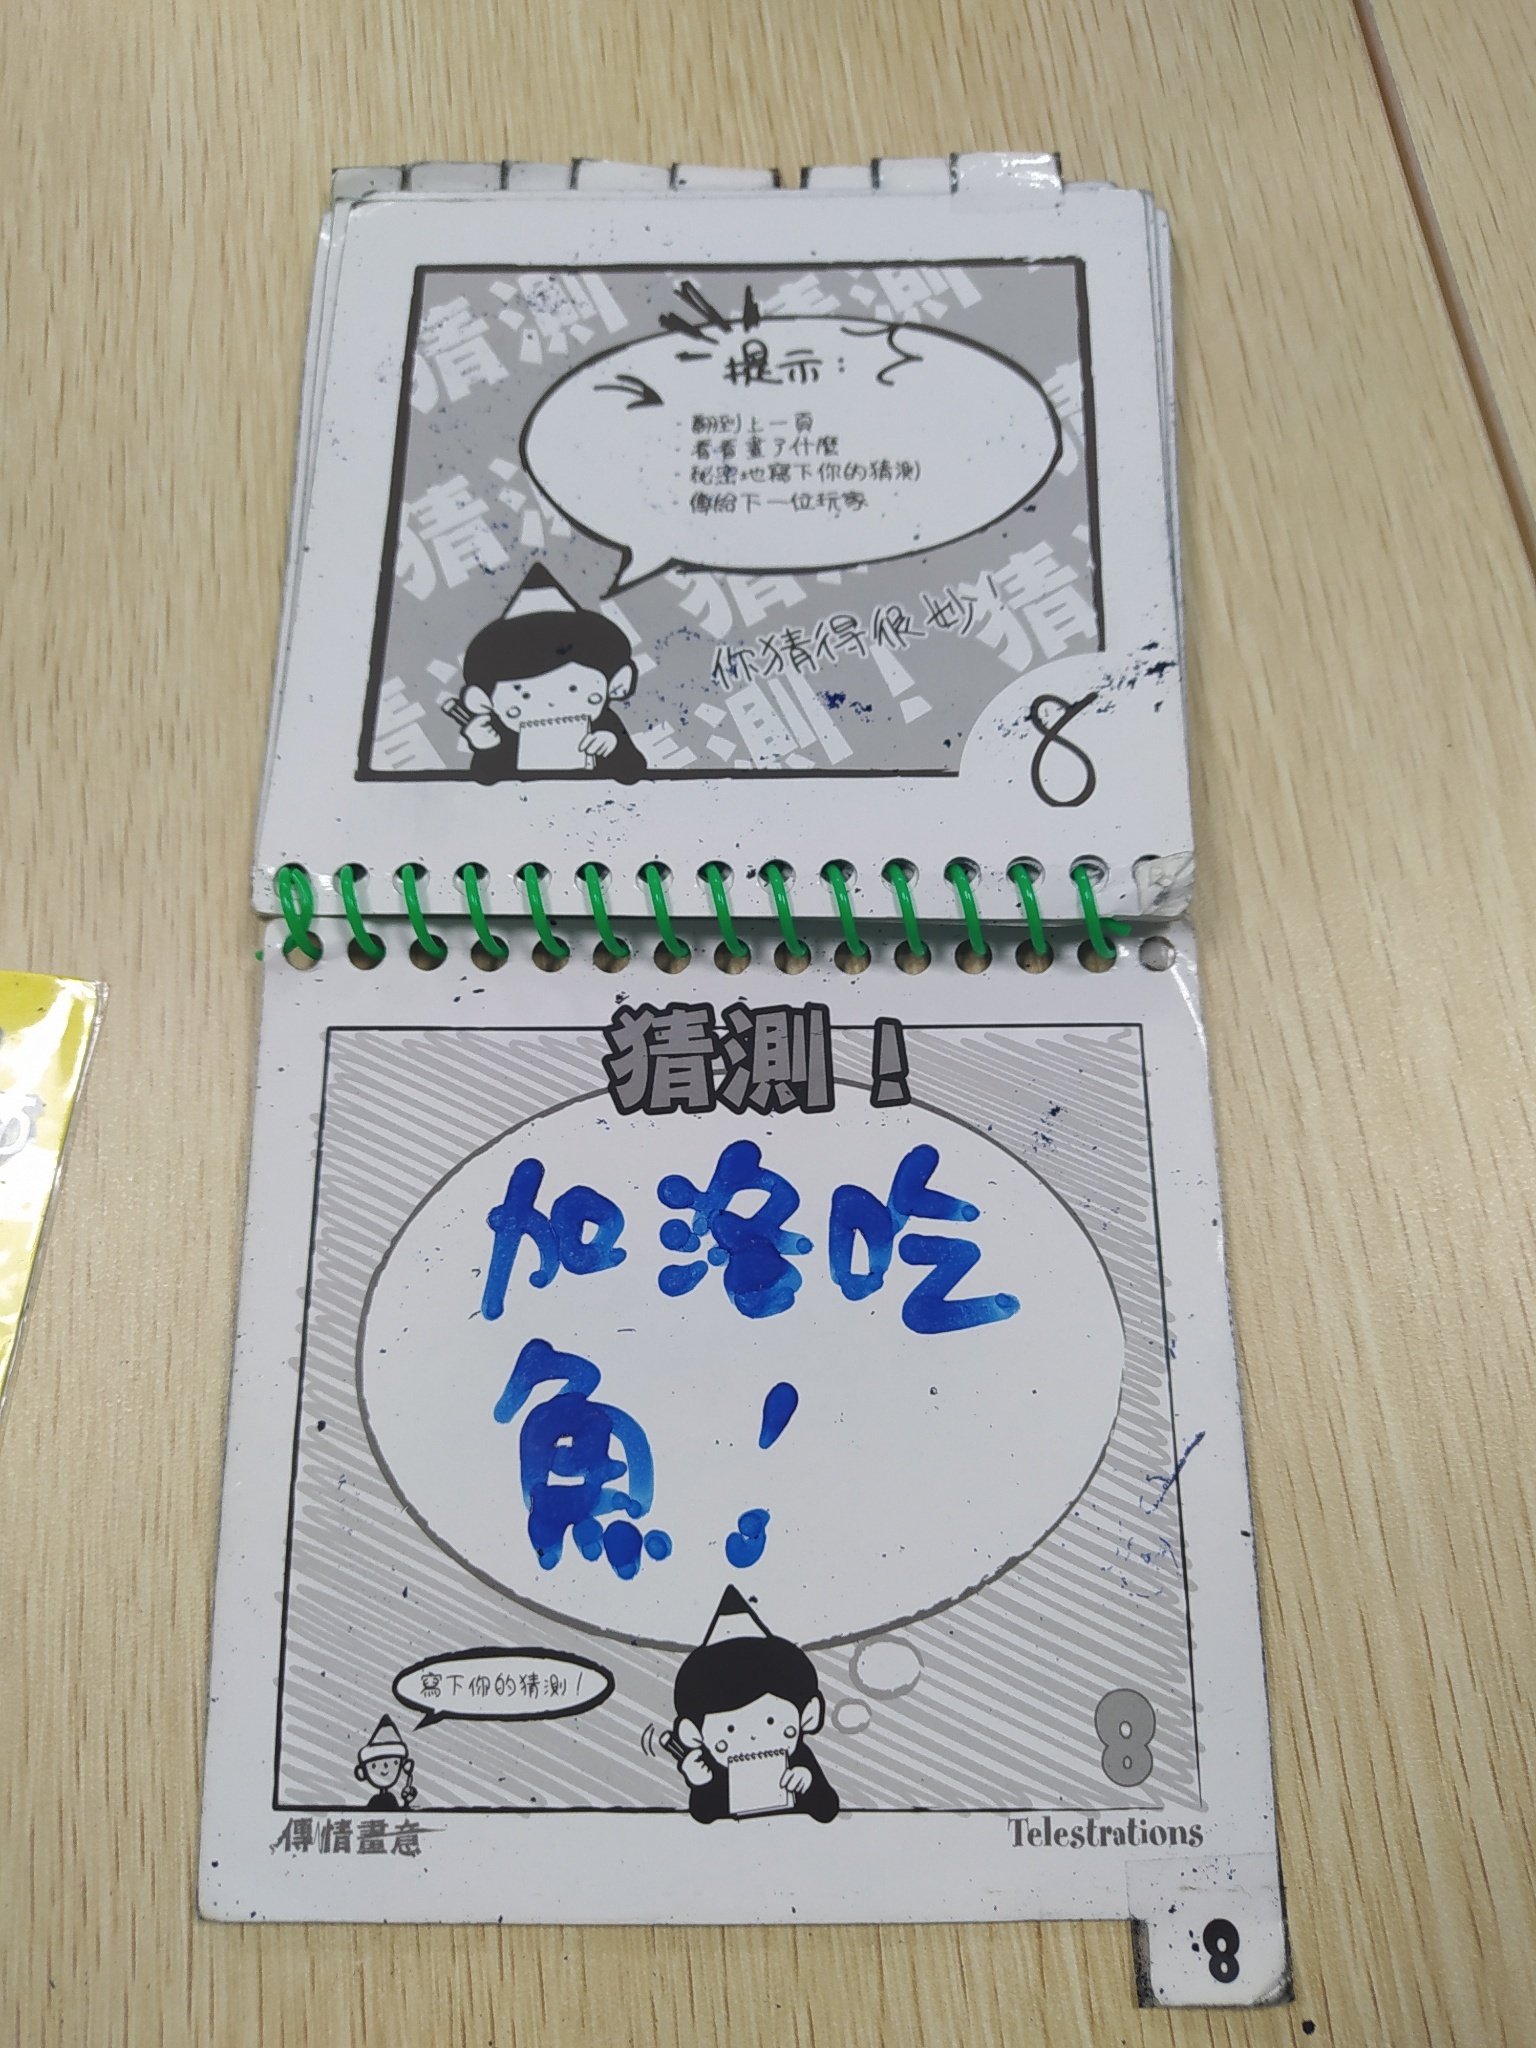 提示：
·翻到上一頁
·看看畫了什麼
·秘密地寫下你的猜測
·傳給下一位玩家
你猜得很妙！
8
猜測！
加洛吃
魚！
寫下你的猜測！
8
傳情畫意
Telestrations
8